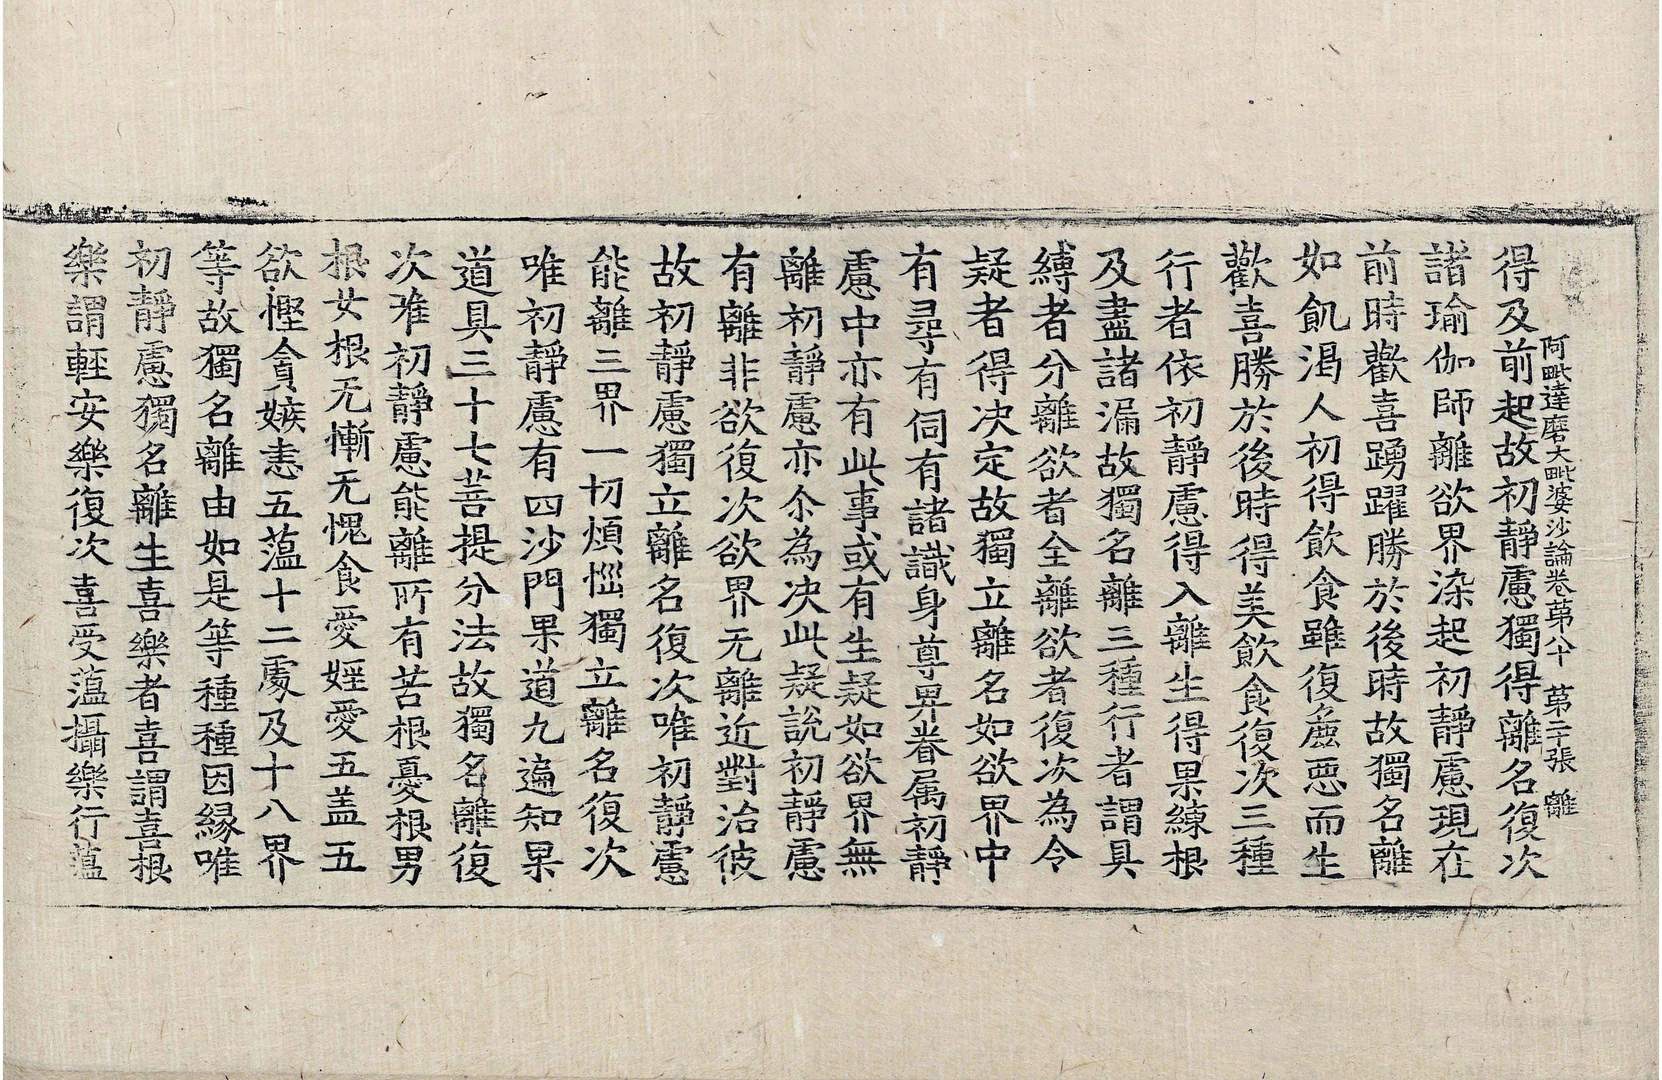 阿毗達磨大毗婆沙論卷苐八十 苐二十張 離
得及前起故初靜慮獨得離名復次
諸瑜伽師離欲界染起初靜慮現在
前時歡喜踴躍勝於後時故獨名離
如飢渴人初得飮食雖復麁惡而生
歡喜勝於後時得美飮食復次三種
行者依初靜慮得入離生得果練根
及盡諸漏故獨名離三種行者謂具
縛者分離欲者全離欲者復次為令
疑者得决定故獨立離名如欲界中
有尋有伺有諸識身尊卑眷属初靜
慮中亦有此事或有生疑如欲界無
離初靜慮亦尒為决此疑說初靜慮
有離非欲復次欲界无離近對治彼
故初靜慮獨立離名復次唯初靜慮
能離三界一切煩惱獨立離名復次
唯初靜慮有四沙門果道九遍知果
道具三十七菩提分法故獨名離復
次唯初靜慮能離所有苦根憂根男
根女根无慚无愧食愛婬愛五盖五
欲慳貪嫉恚五蕰十二處及十八界
等故獨名離由如是等種種因緣唯
初靜慮獨名離生喜樂者喜謂喜根
樂謂輕安樂復次喜受蕰攝樂行蕰